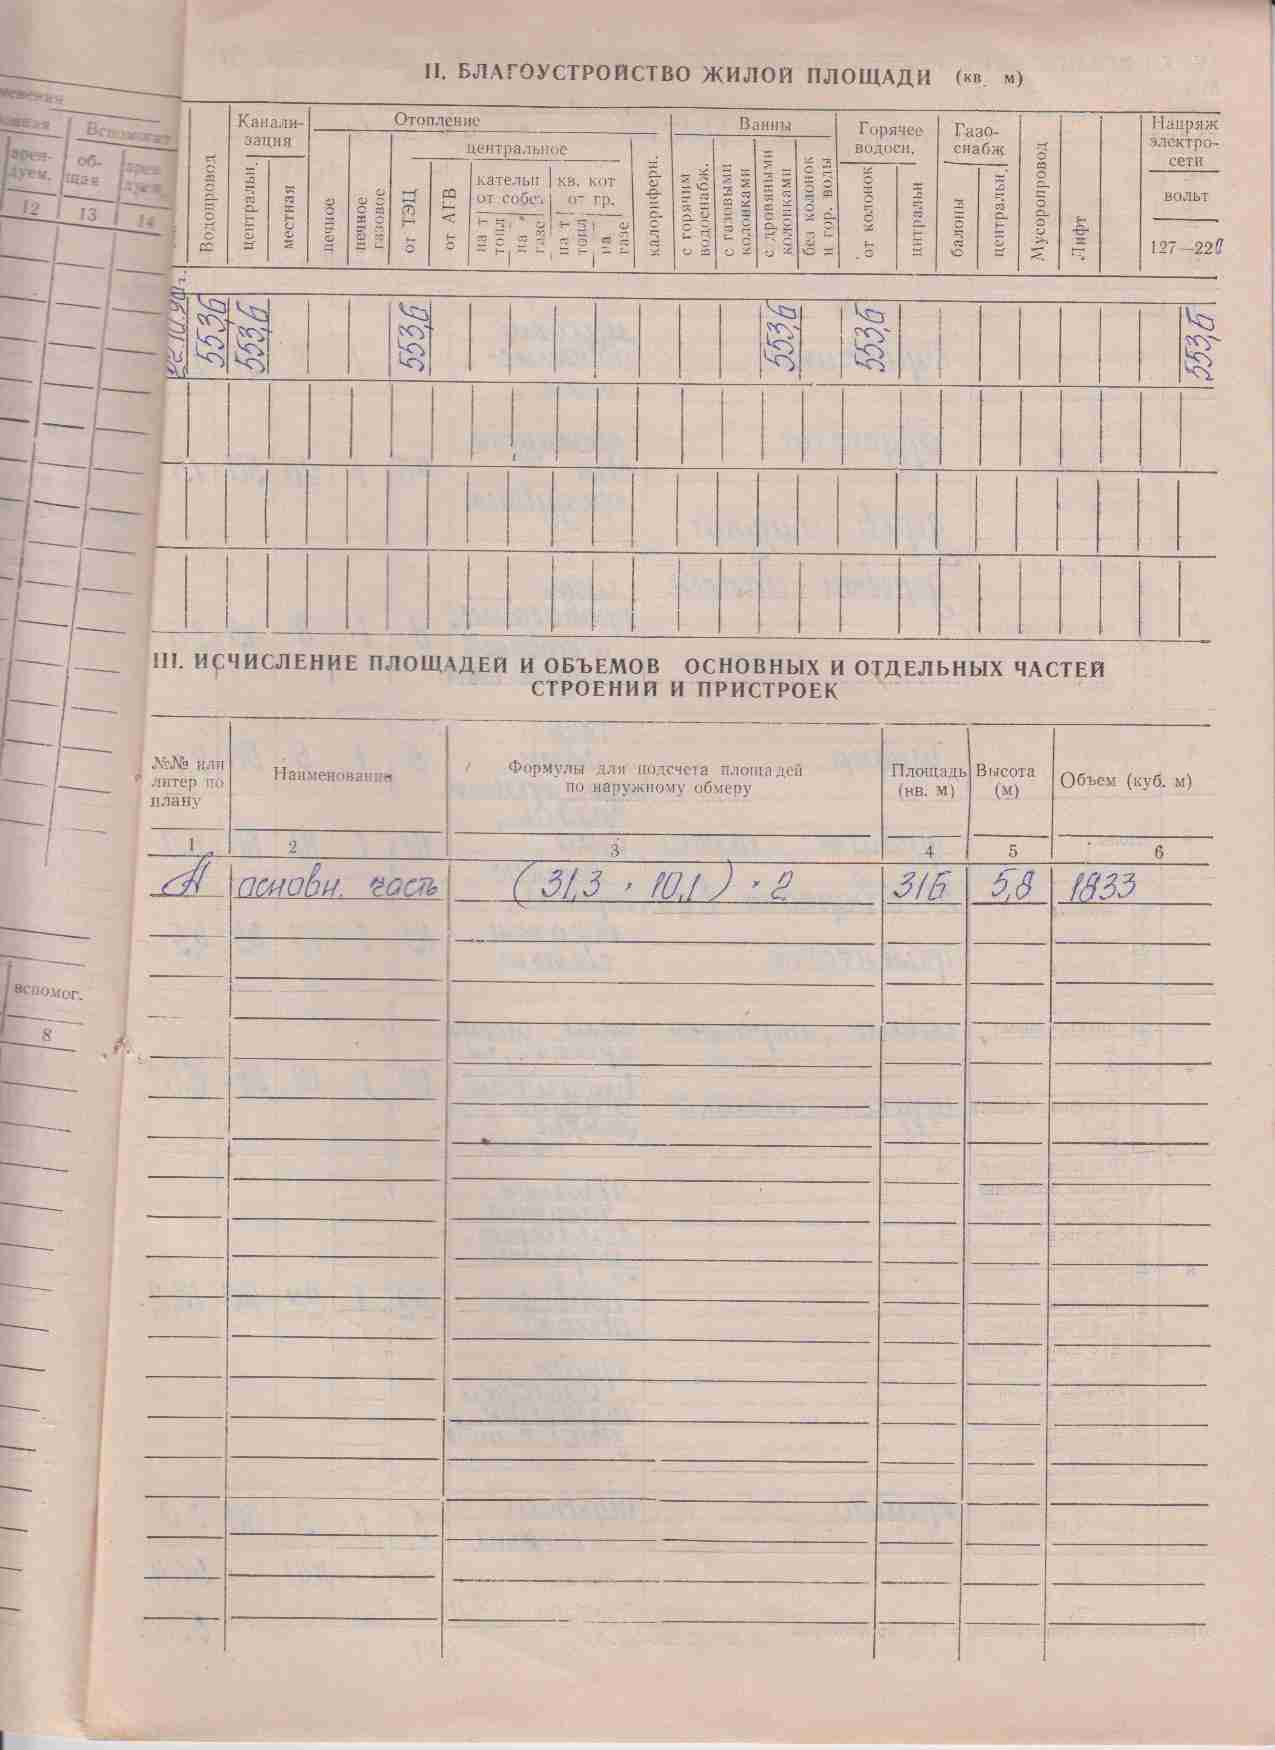 II. БЛАГОУСТРОЙСТВО ЖИЛОЙ ПЛОЩАДИ (кв. м)
Водопровод
Канали-
зация
централын.
местная
Отопление
печное
печное
газовое
центральное
от ТЭЦ
от АГВ
кательн
от собст.
на т
топл
на
газе
кв. кот
от гр.
на т
топл
на
газе
калориферн.
Ванны
с горячим
водоснабж.
с газовыми
колонками
с дровяными
колонками
без колонок
и гор. воды
Горячее
водосн.
от колонок
цнтральн
Газо-
снабж
балоны
централын.
Мусоропровод
Лифт
Напряж
электро-
сети
вольт
127—220
553,6 553,6 553,6 553,6 553,6 553,6
III. ИСЧИСЛЕНИЕ ПЛОЩАДЕЙ И ОБЪЕМОВ ОСНОВНЫХ И ОТДЕЛЬНЫХ ЧАСТЕЙ
СТРОЕНИЙ И ПРИСТРОЕК
№№ или
литер по
плану
Наименование
Формулы для подсчета площадей
по наружному обмеру
Площадь
(кв. м)
Высота
(м)
Объем (куб. м)
1 2 3 4 5 6
А основн. часть (31,3 · 10,1) · 2 316 5,8 1833
Вспомогат
арен-
дуем.
об-
щая
арен
дуем.
12 13 14
вспомог.
8